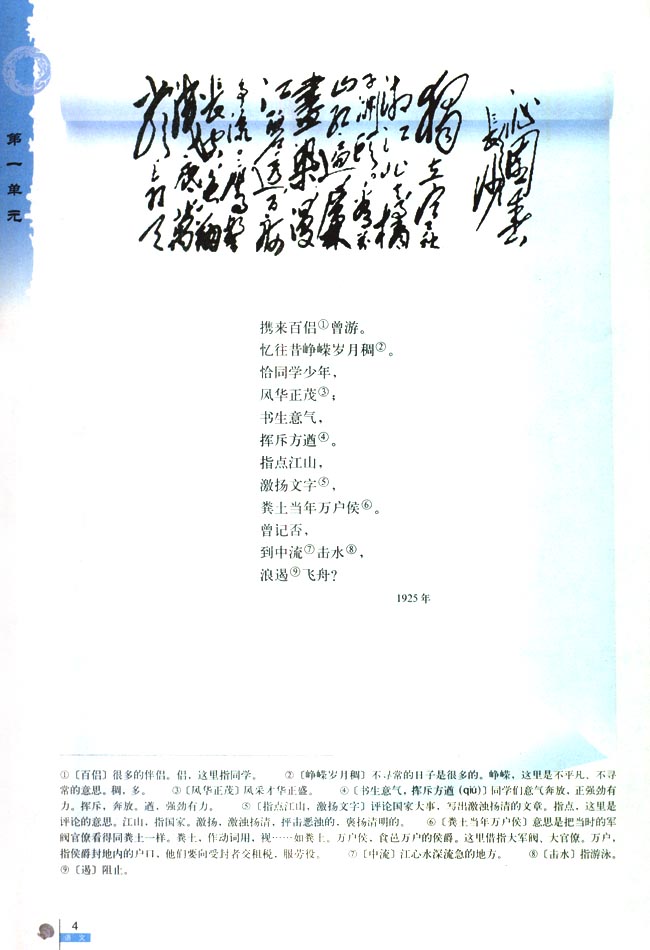 第一单元
沁园春
长沙
独立寒秋
湘江北去橘
子洲头看万
山红遍层林
尽染漫
江碧透百舸
争流鹰击
长空鱼翔
浅底万
携来百侣①曾游。
忆往昔峥嵘岁月稠②。
恰同学少年，
风华正茂③；
书生意气，
挥斥方遒④。
指点江山，
激扬文字⑤，
粪土当年万户侯⑥。
曾记否，
到中流⑦击水⑧，
浪遏⑨飞舟？
1925年
①〔百侣〕很多的伴侣。侣，这里指同学。　②〔峥嵘岁月稠〕不寻常的日子是很多的。峥嵘，这里是不平凡、不寻
常的意思。稠，多。　③〔风华正茂〕风采才华正盛。　④〔书生意气，挥斥方遒（qiú）〕同学们意气奔放，正强劲有
力。挥斥，奔放。遒，强劲有力。　⑤〔指点江山，激扬文字〕评论国家大事，写出激浊扬清的文章。指点，这里是
评论的意思。江山，指国家。激扬，激浊扬清，抨击恶浊的，褒扬清明的。　⑥〔粪土当年万户侯〕意思是把当时的军
阀官僚看得同粪土一样。粪土，作动词用，视……如粪土。万户侯，食邑万户的侯爵。这里借指大军阀、大官僚。万户，
指侯爵封地内的户口，他们要向受封者交租税，服劳役。　⑦〔中流〕江心水深流急的地方。　⑧〔击水〕指游泳。
⑨〔遏〕阻止。
4
语文